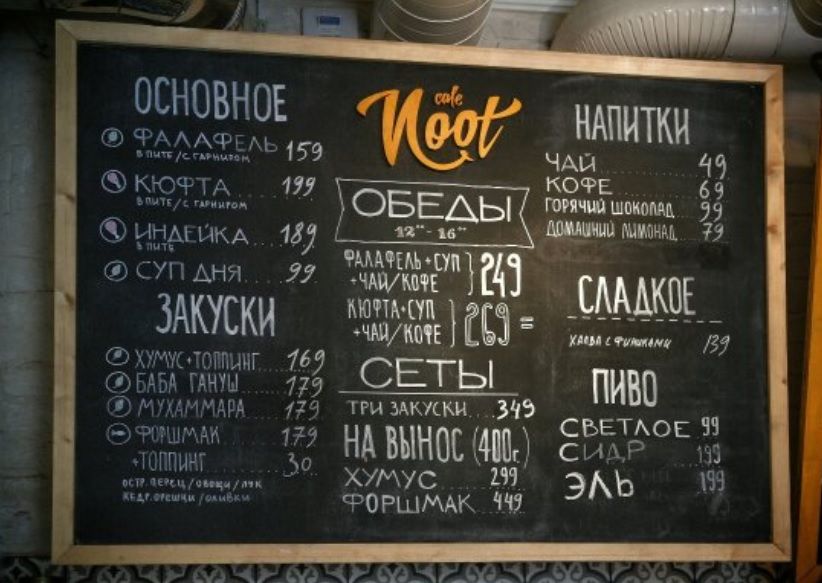 ОСНОВНОЕ
ФАЛАФЕЛЬ 159
В ПИТЕ/С ГАРНИРОМ
КЮФТА 199
В ПИТЕ/С ГАРНИРОМ
ИНДЕЙКА 189
В ПИТЕ
СУП ДНЯ 99
ЗАКУСКИ
ХУМУС+ТОППИНГ 169
БАБА ГАНУШ 179
МУХАММАРА 179
ФОРШМАК 179
+ТОППИНГ 30
ОСТР.ПЕРЕЦ/ОВОЩИ/ЛУК
КЕДР.ОРЕШКИ/ОЛИВКИ
cafe
Noot
ОБЕДЫ
12°° - 16°°
ФАЛАФЕЛЬ+СУП
+ЧАЙ/КОФЕ } 249
КЮФТА+СУП
+ЧАЙ/КОФЕ } 269 =
СЕТЫ
ТРИ ЗАКУСКИ 349
НА ВЫНОС (400г.)
ХУМУС 299
ФОРШМАК 449
НАПИТКИ
ЧАЙ 49
КОФЕ 69
ГОРЯЧИЙ ШОКОЛАД 99
ДОМАШНИЙ ЛИМОНАД 79
СЛАДКОЕ
ХАЛВА С ФИНИКАМИ 139
ПИВО
СВЕТЛОЕ 99
СИДР 199
ЭЛЬ 199